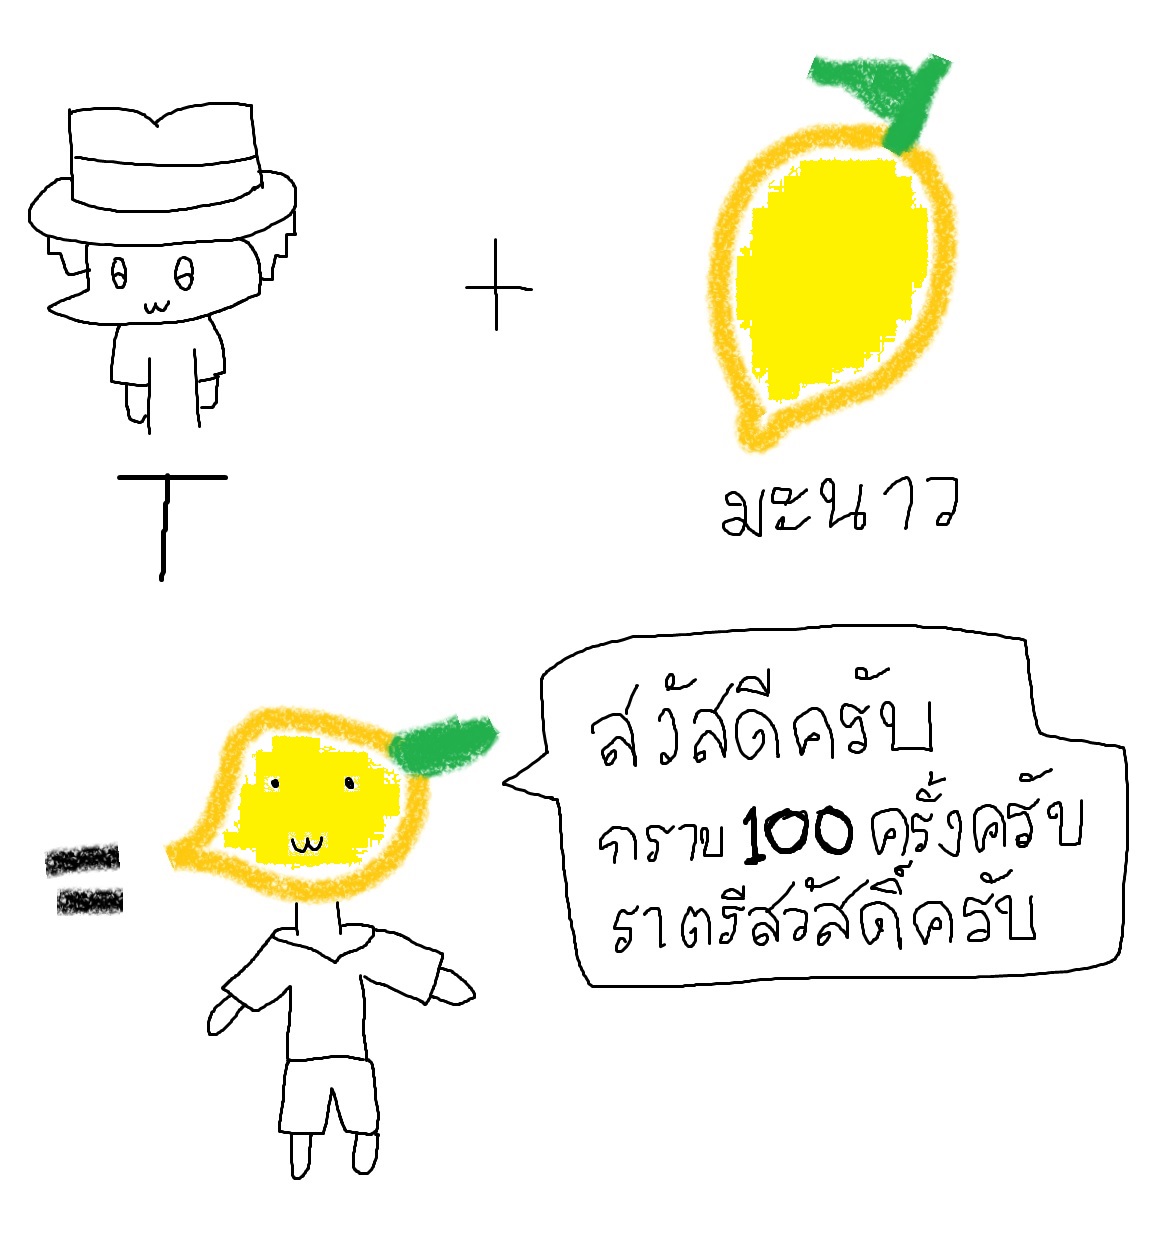 T
มะนาว
สวัสดีครับ
กราบ 100 ครั้งครับ
ราตรีสวัสดิ์ครับ